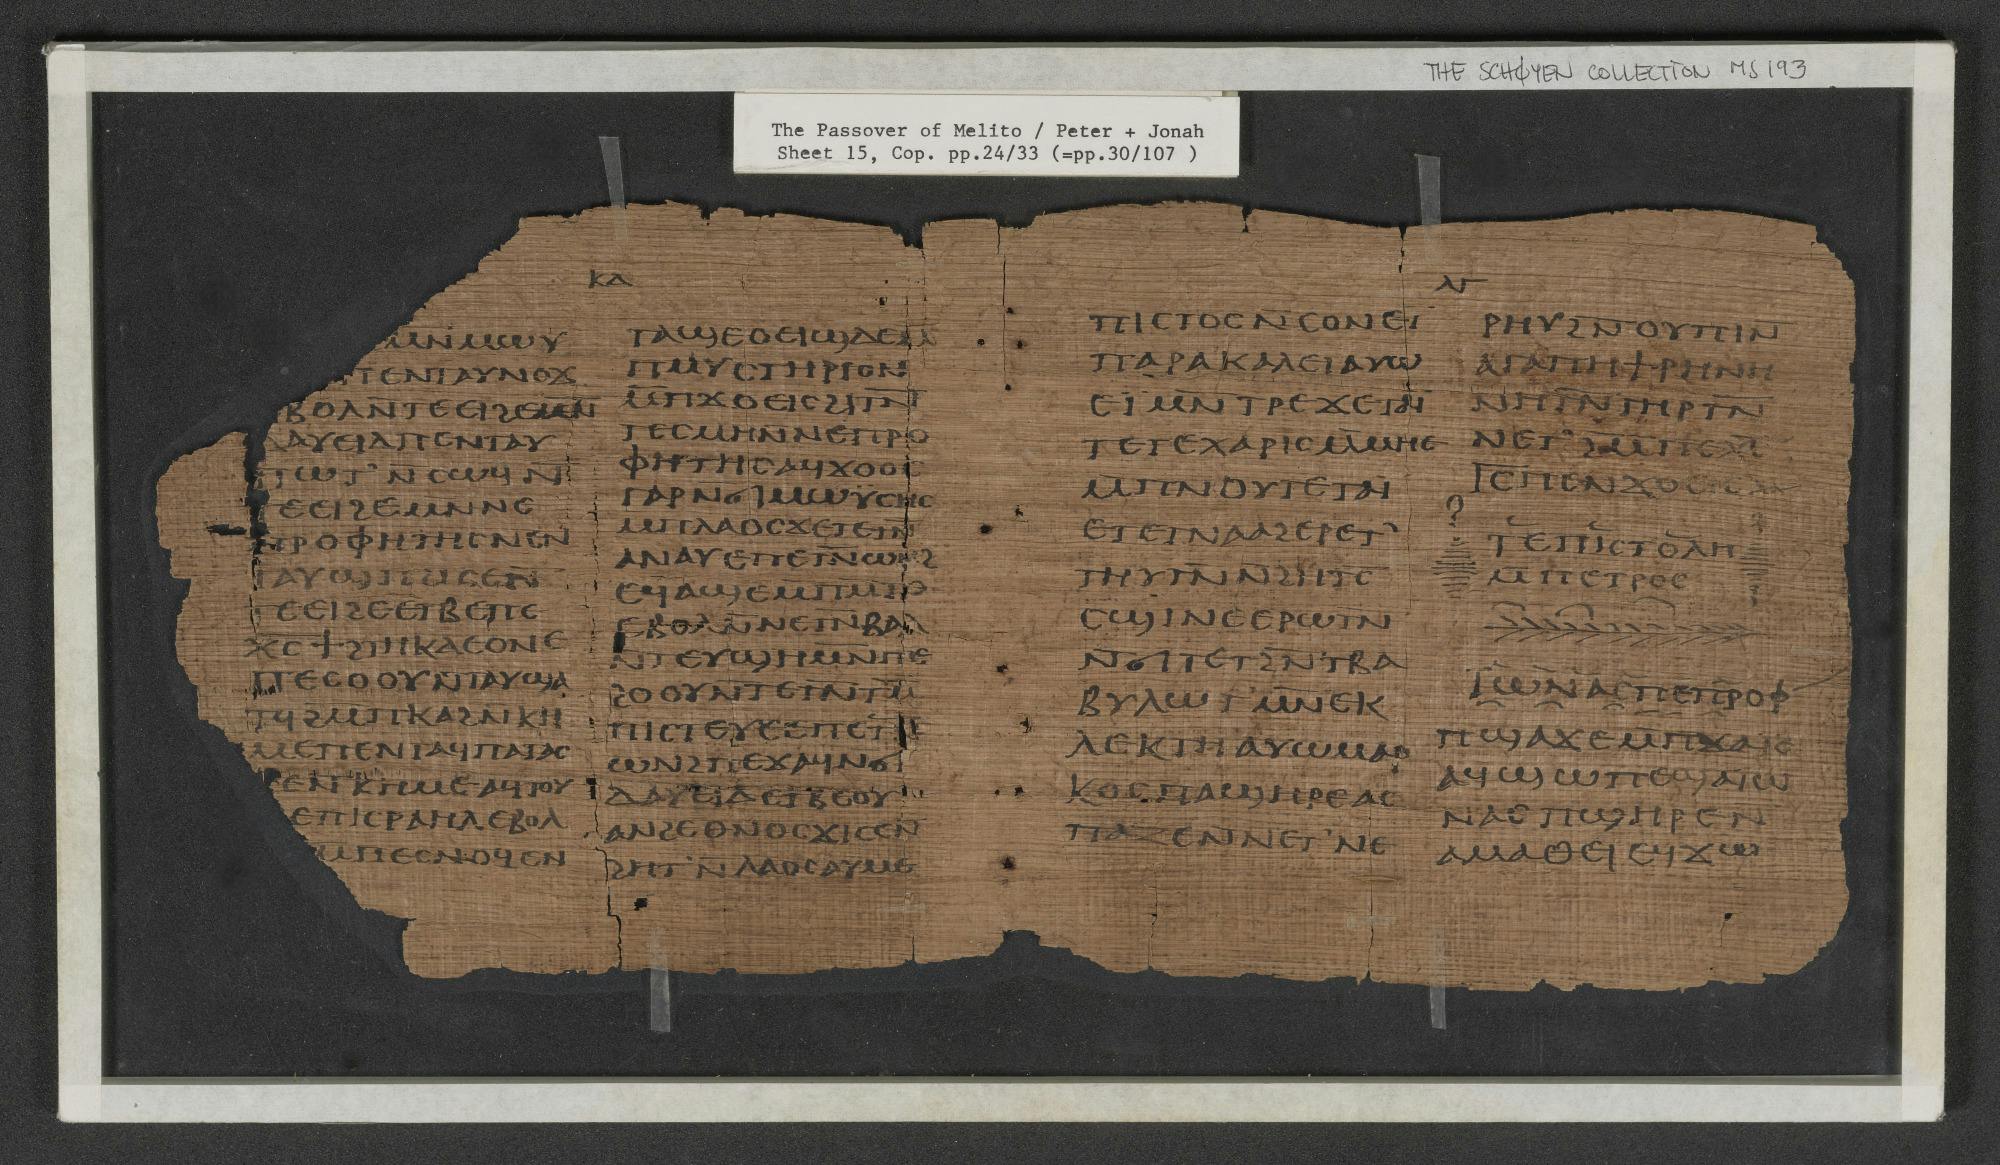 THE SCHØYEN COLLECTION MS 193
The Passover of Melito / Peter + Jonah
Sheet 15, Cop. pp.24/33 (=pp.30/107 )
ⲕⲇ
ⲙⲛⲙⲱⲩ
ⲡⲉⲛⲧⲁⲩⲛⲟϫ
ⲃⲟⲗϩⲛⲧⲉⲉⲓϩⲉⲙⲛ
ⲇⲁⲩⲉⲓⲇⲡⲉⲛⲧⲁⲩ
ⲡⲱⲧʼ ⲛⲥⲱϥ ⲛ̄
ⲧⲉⲉⲓϩⲉⲙⲛⲛⲉ
ⲡⲣⲟⲫⲏⲧⲏⲥⲛⲉⲛ
ⲧⲉⲉⲓϩⲉⲉⲧⲃⲉⲡⲉ
ⲭ̅ⲥ̅ϯϩⲧⲏⲕⲇⲉⲟⲛⲉ
ⲡⲉⲥⲟⲟⲩⲛⲧⲁⲩϣⲁ
ⲧϥϩⲙⲡⲕⲁϩⲛⲕⲏ
ⲙⲉⲡⲉⲛⲧⲁϥⲡⲁⲧⲁⲥ
ⲥⲉⲛⲕⲏⲙⲉⲁϥⲧⲟⲩ
ϫⲉⲡⲓⲥⲣⲁⲏⲗⲉⲃⲟⲗ
ϩⲙⲡⲉⲥⲛⲟϥⲉⲛ
ⲧⲁϣⲉⲟⲉⲓϣⲇⲉⲙ
ⲡⲙⲩⲥⲧⲏⲣⲓⲟⲛ
ⲙ̄ⲡϫⲟⲉⲓⲥϩⲓⲧⲛ̄ⲧ
ⲧⲉⲥⲙⲏⲛⲛⲉⲡⲣⲟ
ⲫⲏⲧⲏⲥⲁϥϫⲟⲟⲥ
ⲅⲁⲣⲛϭⲓⲙⲱⲩⲥⲏⲥ
ⲙⲡⲗⲁⲟⲥϫⲉⲧⲉⲧⲛ
ⲁⲛⲁⲩⲉⲡⲉⲧⲛⲱⲛϩ
ⲉϥⲁϣⲉⲙ̄ⲡⲙ̄ⲧⲟ
ⲉⲃⲟⲗⲛ̄ⲛⲉⲧⲛⲃⲁⲗ
ⲛ̄ⲧⲉⲩϣⲏⲙⲛⲡⲉ
ϩⲟⲟⲩⲛⲧⲉⲧⲛⲧⲙ
ⲡⲓⲥⲧⲉⲩⲉⲉⲡⲉⲧⲛ
ⲱⲛϩⲡⲉϫⲁϥⲛϭⲓ
ⲇⲁⲩⲉⲓⲇⲉⲧⲃⲉⲟⲩ
ⲁⲛϩⲉⲑⲛⲟⲥϫⲓⲥⲉⲛ
ϩⲏⲧʼ ⲛ̄ⲗⲁⲟⲥⲁⲩⲙⲉ
ⲗⲅ
ⲡⲓⲥⲧⲟⲥⲛⲥⲟⲛⲉⲓ
ⲡⲁⲣⲁⲕⲁⲗⲉⲓⲁⲩⲱ
ⲉⲓⲙⲛⲧⲣⲉϫⲉⲧⲁⲓ
ⲧⲉⲧⲉⲭⲁⲣⲓⲥⲙ̄ⲙⲏⲉ
ⲙⲡⲛⲟⲩⲧⲉⲧⲁⲓ
ⲉⲧⲉⲧⲛⲁⲁϩⲉⲣⲉⲧʼ
ⲧⲏⲩⲧⲛ̄ⲛϩⲏⲧⲥ
ⲥϣⲓⲛⲉⲉⲣⲱⲧⲛ
ⲛ̄ϭⲓⲧⲉⲧϩⲛ̄ⲧⲃⲁ
ⲃⲩⲗⲱⲛⲙ̄ⲛⲉⲕ
ⲗⲉⲕⲧⲏⲁⲩⲱⲙⲁⲣ
ⲕⲟⲥⲡⲁϣⲏⲣⲉⲁⲥ
ⲡⲁⲍⲉⲛⲛⲉⲧʼⲛⲉ
ⲣⲏⲩϩⲛ̄ⲟⲩⲡⲓⲛ
ⲁⲅⲁⲡⲏϯⲣⲏⲛⲏ
ⲛⲏⲧⲛ̄ⲧⲏⲣⲧⲛ̄
ⲛⲉⲧʼϩⲙ̄ⲡⲉⲭⲣ
ⲓⲥ̄ⲡⲉⲛϫⲟⲉⲓⲥ
ⲧⲉⲡⲓⲥⲧⲟⲗⲏ
ⲙⲡⲉⲧⲣⲟⲥ
ⲓ̈ⲱⲛⲁⲥⲡⲉⲡⲣⲟⲫ
ⲡϣⲁϫⲉⲙⲡϫⲟⲉⲓⲥ
ⲁϥϣⲱⲡⲉϣⲁⲓ̈ⲱ
ⲛⲁⲥ ⲡϣⲏⲣⲉⲛ
ⲁⲙⲁⲑⲉⲓⲉϥϫⲱ